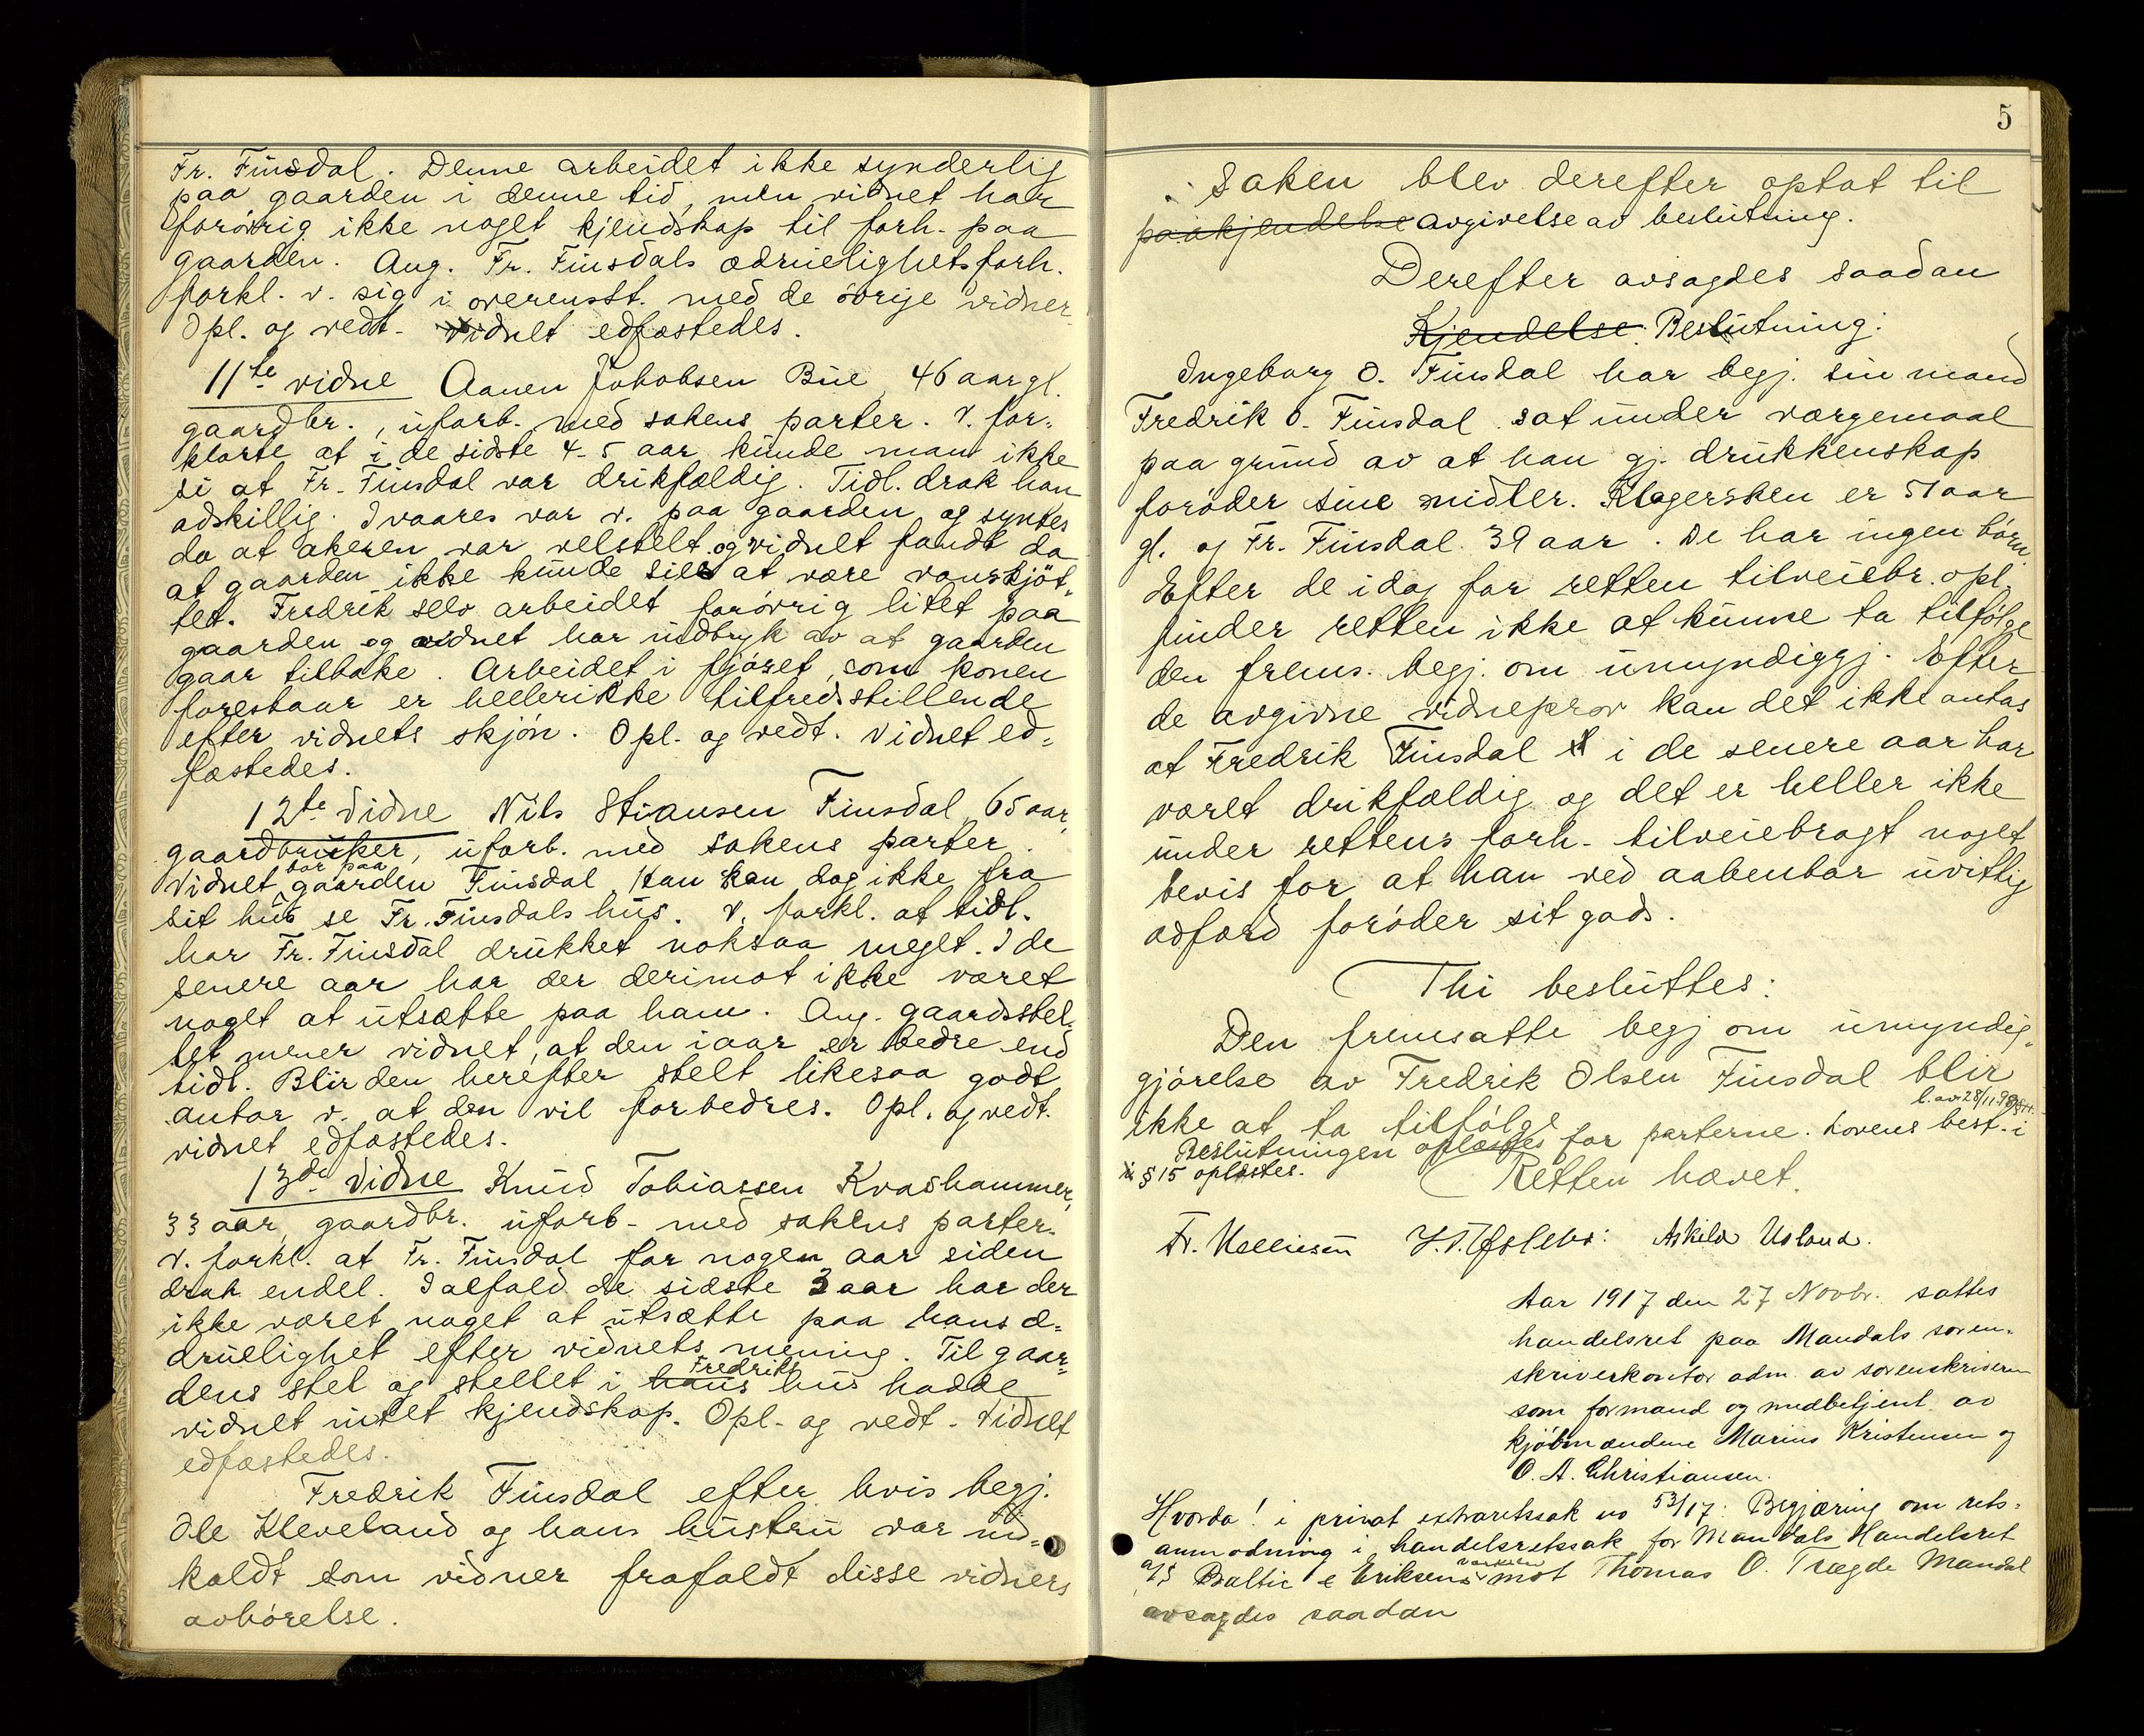 Fr. Finsdal. Denne arbeidet ikke synderlig
paa gaarden i denne tid, men vidnet har
forøvrig ikke noget kjendskap til forh. paa
gaarden. Ang. Fr. Finsdals ædruelighetsforh.
forkl. v. sig i overensst. med de øvrige vidner
Opl. og vedt. Vidnet edfæstedes.
11te vidne Aanen Jakobsen Bue, 46 aar gl.
gaardbr., uforb. med sakens parter. V. for-
klarte at i de sidste 4-5 aar kunde man ikke
si at Fr. Finsdal var drikfældig. Tidl. drak han
adskillig. Ivaares var v. paa gaarden og syntes
da at akeren var velstelt og vidnet fandt da
at gaarden ikke kunde sies at være vanskjøt-
tet. Fredrik selv arbeidet forøvrig litet paa
gaarden og vidnet har indtryk av at gaarden
gaar tilbake. Arbeidet i fjøset, som konen
forestaar er hellerikke tilfredsstillende
efter vidnets skjøn. Opl. og vedt. Vidnet ed-
fæstedes.
12te Vidne Nils Stiansen Finsdal, 65 aar,
gaardbruker, uforb. med sakens parter.
Vidnet bor paa gaarden Finsdal. Han kan dog ikke fra
sit hus se Fr. Finsdals hus. V. forkl. at tidl.
har Fr. Finsdal drukket noksaa meget. I de
senere aar har der derimot ikke været
noget at utsætte paa ham. Ang. gaardsstel-
let mener vidnet, at den iaar er bedre end
tidl. Blir den herefter stelt likesaa godt
antar v. at den vil forbedres. Opl. og vedt.
vidnet edfæstedes.
13de Vidne Knud Tobiassen Kvashammer,
33 aar, gaardbr. uforb. med sakens parter.
V. forkl. at Fr. Finsdal for nogen aar siden
drak endel. Ialfald de sidste 3 aar har der
ikke været noget at utsætte paa hans æ-
druelighet efter vidnets mening. Til gaar-
dens stel og stellet i hans Fredriks hus hadde
vidnet intet kjendskap. Opl. og vedt. Vidnet
edfæstedes.
Fredrik Finsdal efter hvis begj.
Ole Kleveland og hans hustru var ind-
kaldt som vidner frafaldt disse vidners
avhørelse.
5
Saken blev derefter optat til
paakjendelse avgivelse av beslutning.
Derefter avsagdes saadan
Kjendelse: Beslutning:
Ingeborg O. Finsdal har begj. sin mand
Fredrik O. Finsdal sat under værgemaal
paa grund av at han gj. drukkenskap
forøder sine midler. Klagersken er 51 aar
gl. og Fr. Finsdal 39 aar. De har ingen børn.
Efter de idag for retten tilveiebr. opl.
finder retten ikke at kunne ta tilfølge
den frems. begj. om umyndiggj. Efter
de avgivne vidneprov kan det ikke antas
at Fredrik Finsdal i de senere aar har
været drikfældig og det er heller ikke
under rettens forh. tilveiebragt noget
bevis for at han ved aabenbar uvittig
adfærd forøder sit gods.
Thi besluttes:
Den fremsatte begj om umyndig-
gjørelse av Fredrik Olsen Finsdal blir
ikke at ta tilfølge
Beslutningen oplæstes for parterne. Lovens best. i
l. av 28/11.98
§ 15 oplæstes.
Retten hævet.
Fr. Askild Usland.
Aar 1917 den 27 Novbr. sattes
handelsret paa Mandals soren-
skriverkontor adm. av sorenskriveren
som formand og medbetjent av
kjøbmændene Marius Kristensen og
O. A. Christiansen.
Hvorda! i privat extraretssak no 53/17: Begjæring om rets-
anmodning i handelsretssak for Mandals Handelsret
a/s Baltic e Eriksens mot Thomas O. Trægde Mandal
avsagdes saadan